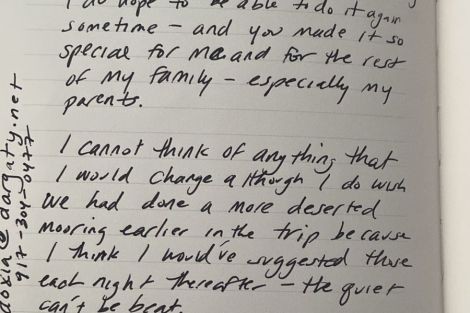 I do hope to be able to do it again
sometime - and you made it so
special for me and for the rest
of my family - especially my
parents.
I cannot think of anything that
I would change although I do wish
we had done a more deserted
mooring earlier in the trip because
I think I would've suggested those
each night thereafter - the quiet
can't be beat.
@dargaty.net
917-304-0477